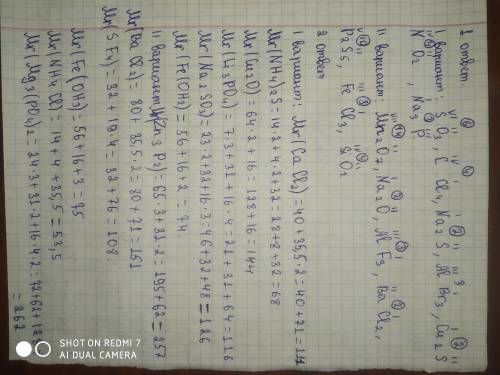 1 ответ
1 вариант: SO3, CCl4, Na2S, AlBr3, Cu2S
NO2, Na3P
II вариант: Mn2O7, Na2O, AlF3, BaCl2,
P2S5, FeCl3, SiO2
2 ответ
1 вариант: Mr(CaCl2)=40+35,5·2=40+71=111
Mr(NH4)2S=14·2+4·2+32=28+8+32=68
Mr(Cu2O)=64·2+16=128+16=144
Mr(H3PO4)=7·3+31+16·4=21+31+64=116
Mr(Na2SO3)=23·2+32+16·3=46+32+48=126
Mr(Fe(OH2)=56+16·2=74
II вариант Mr(Zn3P2)=65·3+31·2=195+62=257
Mr(BaCl2)=80+35,5·2=80+71=151
Mr(SF4)=32+19·4=32+76=108.
Mr(Fe(OH3)=56+16+3=75
Mr(NH4Cl)=14+4+35,5=53,5
Mr(Mg3(PO4)2=24·3+31·2+16·4·2=72+62+128
=262
SHOT ON REDMI 7
AI DUAL CAMERA